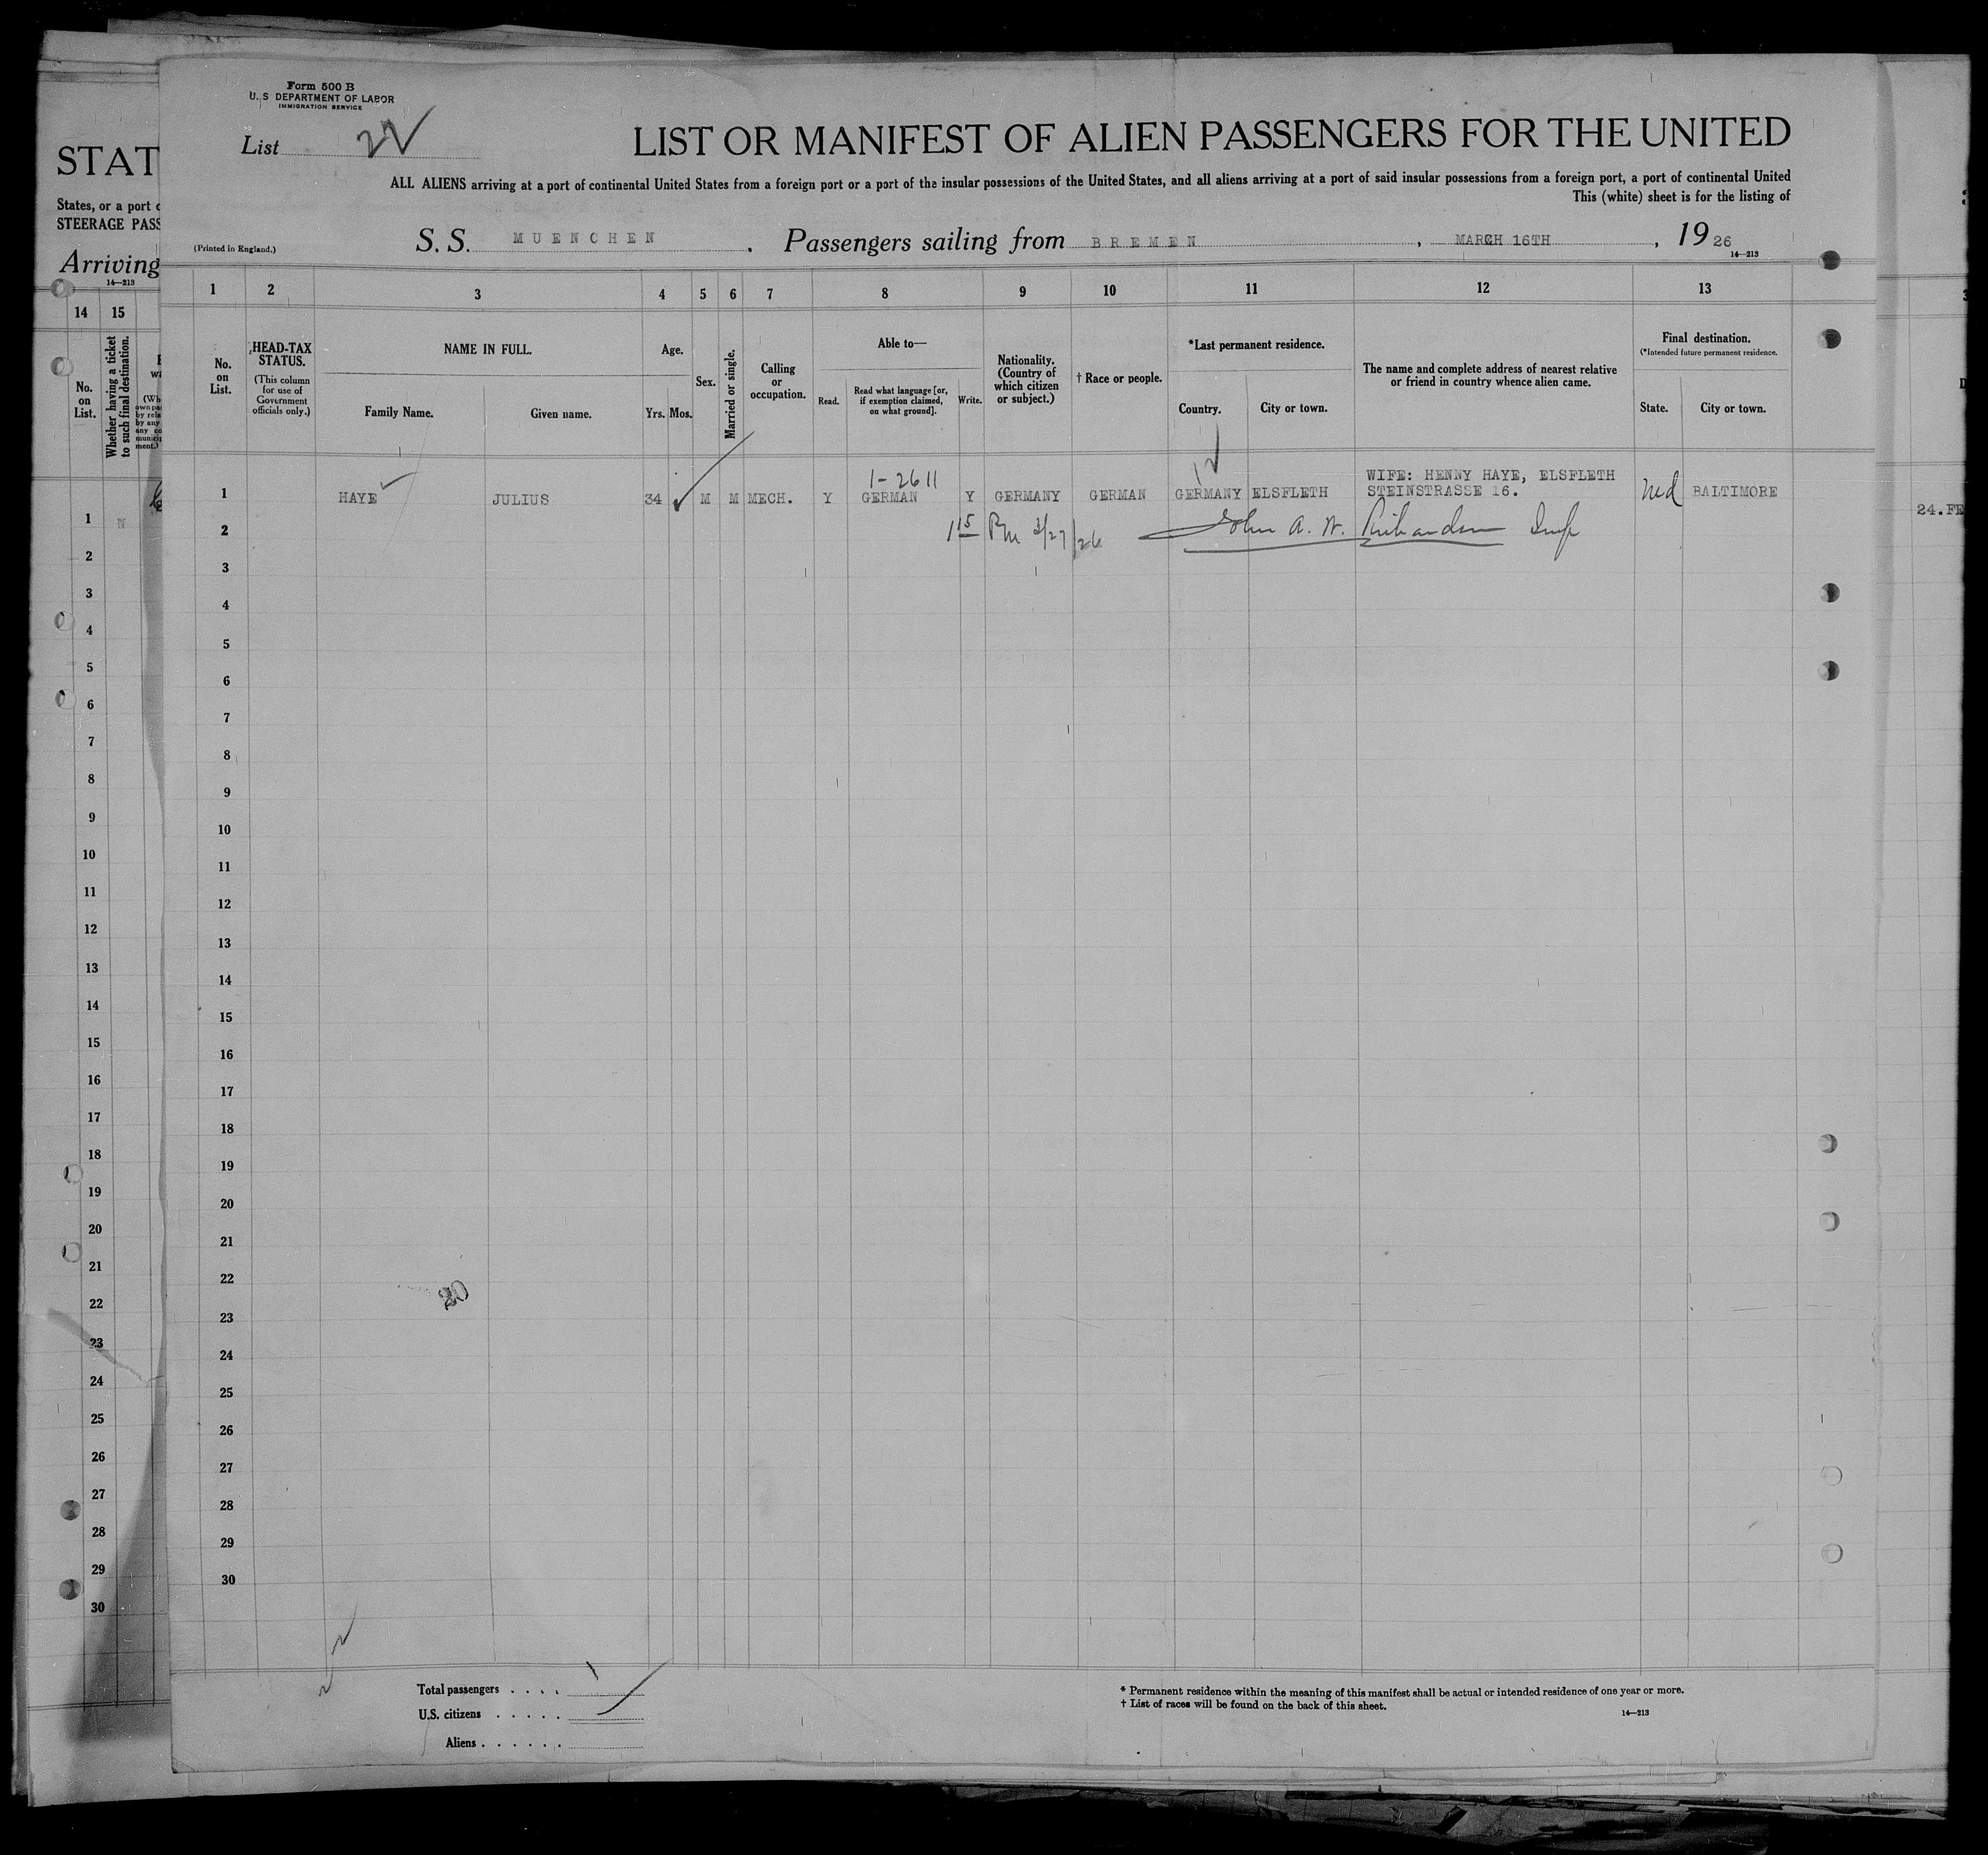 Form 500 B
U. S DEPARTMENT OF LABOR
IMMIGRATION SERVICE
List 22
LIST OR MANIFEST OF ALIEN PASSENGERS FOR THE UNITED
ALL ALIENS arriving at a port of continental United States from a foreign port or a port of the insular possessions of the United States, and all aliens arriving at a port of said insular possessions from a foreign port, a port of continental United
This (white) sheet is for the listing of
(Printed in England.)
S. S. MUENCHEN. Passengers sailing from BREMEN, MARCH 16TH, 19 26
14—213
1 2 3 4 5 6 7 8 9 10 11 12 13
No. on List.
HEAD-TAX STATUS.
(This column for use of Government officials only.)
NAME IN FULL.
Family Name. Given name.
Age.
Yrs. Mos.
Sex.
Married or single.
Calling or occupation.
Able to—
Read. Read what language [or, if exemption claimed, on what ground]. Write.
Nationality. (Country of which citizen or subject.)
† Race or people.
*Last permanent residence.
Country. City or town.
The name and complete address of nearest relative or friend in country whence alien came.
Final destination.
(*Intended future permanent residence.
State. City or town.
1-2611
WIFE: HENNY HAYE, ELSFLETH
1 HAYE JULIUS 34 M M MECH. Y GERMAN Y GERMANY GERMAN GERMANY ELSFLETH STEINSTRASSE 16. Md BALTIMORE
2 1 15 Pm 3/27/26 John A. W. Richardson Insp
3
4
5
6
7
8
9
10
11
12
13
14
15
16
17
18
19
20
21
22
23
24
25
26
27
28
29
30
Total passengers . . . .
U.S. citizens . . . . .
Aliens . . . . . .
* Permanent residence within the meaning of this manifest shall be actual or intended residence of one year or more.
† List of races will be found on the back of this sheet.
14—213
STAT
States, or a port
STEERAGE PASS
Arriving
14—213
14 15
No. on List.
Whether having a ticket to such final destination.
1 N
2
3
4
5
6
7
8
9
10
11
12
13
14
15
16
17
18
19
20
21
22
23
24
25
26
27
28
29
30
24.FE